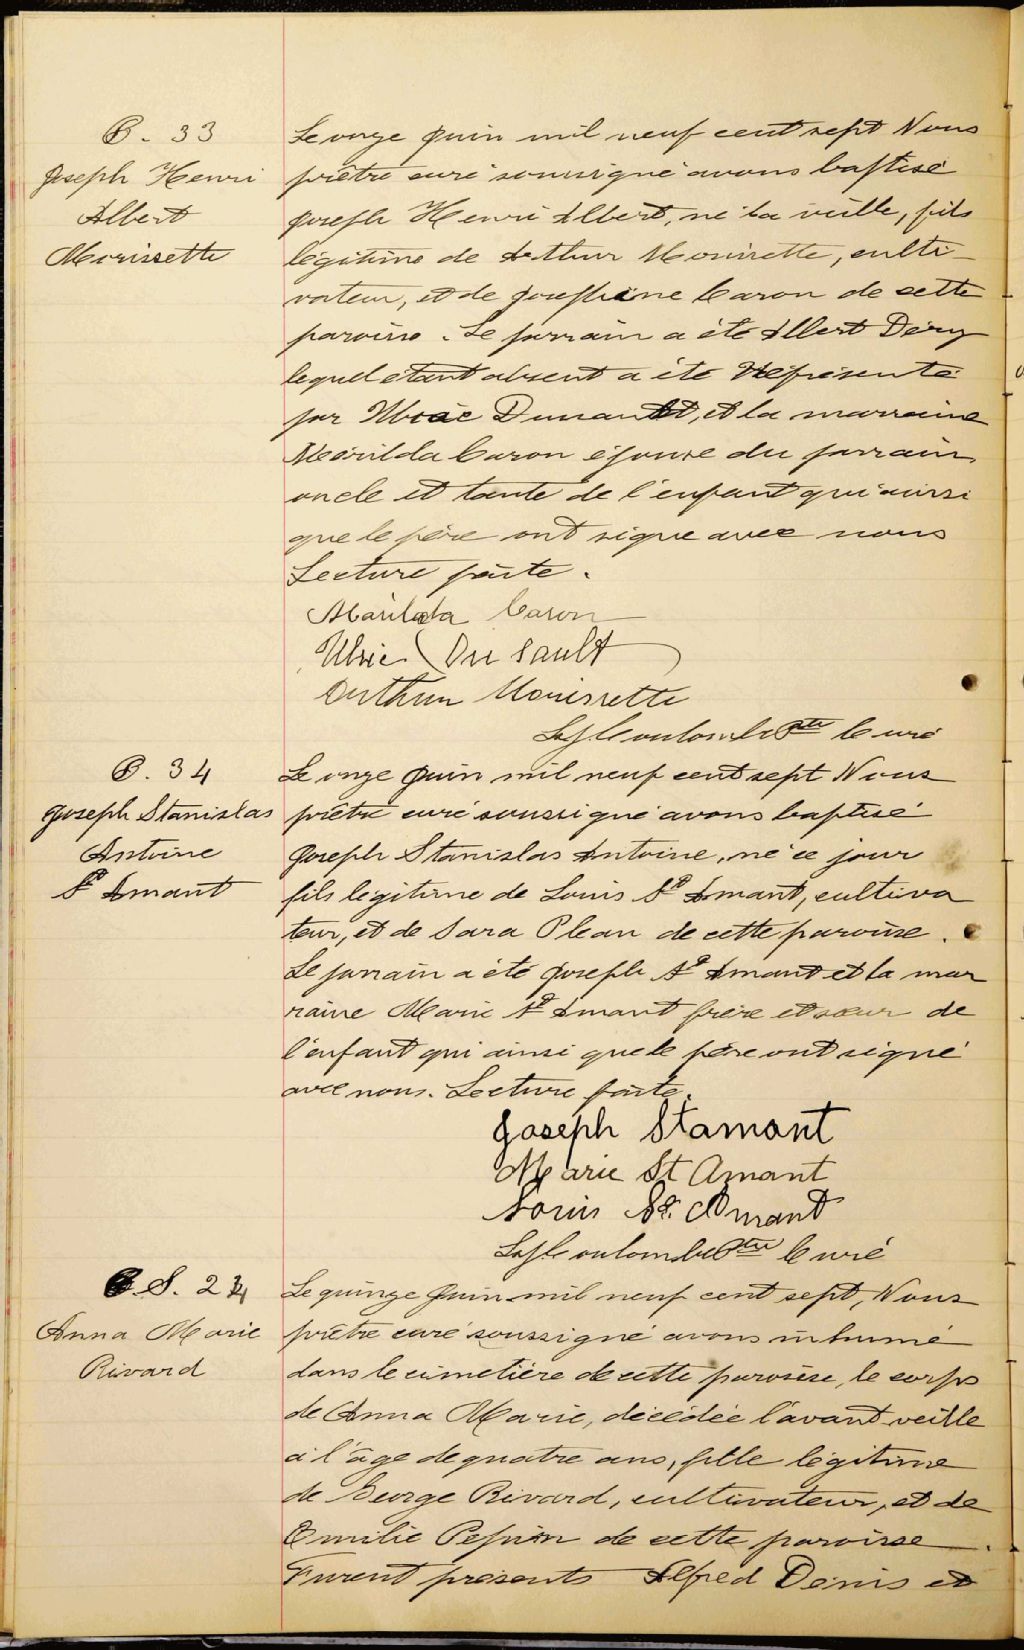 B. 33
Joseph Henri
Albert
Morissette
Le onze Juin mil neuf cent sept Nous
prêtre curé soussigné avons baptisé
Joseph Henri Albert, né la veille, fils
légitime de Arthur Morissette, culti-
vateur, et de Josephine Caron de cette
paroisse. Le parrain a été Albert Déry
lequel étant absent a été représenté
par Ulric Dussault, et la marraine
Marilda Caron épouse du parrain,
oncle et tante de l'enfant qui ainsi
que le père ont signé avec nous
Lecture faite.
Marilda Caron
Ulric Dussault
Arthur Morissette
Ptre Curé
B. 34
Joseph Stanislas
Antoine
St Amant
Le onze Juin mil neuf cent sept Nous
prêtre curé soussigné avons baptisé
Joseph Stanislas Antoine, né ce jour
fils légitime de Louis St Amant, cultiva
teur, et de Sara Pleau de cette paroisse.
Le parrain a été Joseph St Amant et la mar
raine Marie St Amant frère et sœur de
l'enfant qui ainsi que le père ont signé
avec nous. Lecture faite.
Joseph Stamant
Marie St Amant
Louis St. Amant
Ptre Curé
S. 24
Anna Marie
Rivard
Le quinze Juin mil neuf cent sept, Nous
prêtre curé soussigné avons inhumé
dans le cimetière de cette paroisse, le corps
de Anna Marie, décédée l'avant-veille
à l'âge de quatre ans, fille légitime
de George Rivard, cultivateur, et de
Emilie Pepin de cette paroisse.
Furent présents Alfred Denis et